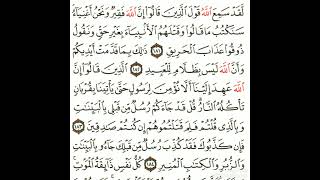 لَّقَدْ سَمِعَ اللَّهُ قَوْلَ الَّذِينَ قَالُوا إِنَّ اللَّهَ فَقِيرٌ وَنَحْنُ أَغْنِيَاءُ
سَنَكْتُبُ مَا قَالُوا وَقَتْلَهُمُ الْأَنبِيَاءَ بِغَيْرِ حَقٍّ وَنَقُولُ
ذُوقُوا عَذَابَ الْحَرِيقِ ١٨١ ذَٰلِكَ بِمَا قَدَّمَتْ أَيْدِيكُمْ
وَأَنَّ اللَّهَ لَيْسَ بِظَلَّامٍ لِّلْعَبِيدِ ١٨٢ الَّذِينَ قَالُوا إِنَّ
اللَّهَ عَهِدَ إِلَيْنَا أَلَّا نُؤْمِنَ لِرَسُولٍ حَتَّىٰ يَأْتِيَنَا بِقُرْبَانٍ
تَأْكُلُهُ النَّارُ قُلْ قَدْ جَاءَكُمْ رُسُلٌ مِّن قَبْلِي بِالْبَيِّنَاتِ
وَبِالَّذِي قُلْتُمْ فَلِمَ قَتَلْتُمُوهُمْ إِن كُنتُمْ صَادِقِينَ ١٨٣
فَإِن كَذَّبُوكَ فَقَدْ كُذِّبَ رُسُلٌ مِّن قَبْلِكَ جَاءُو بِالْبَيِّنَاتِ
وَالزُّبُرِ وَالْكِتَابِ الْمُنِيرِ ١٨٤ كُلُّ نَفْسٍ ذَائِقَةُ الْمَوْتِ